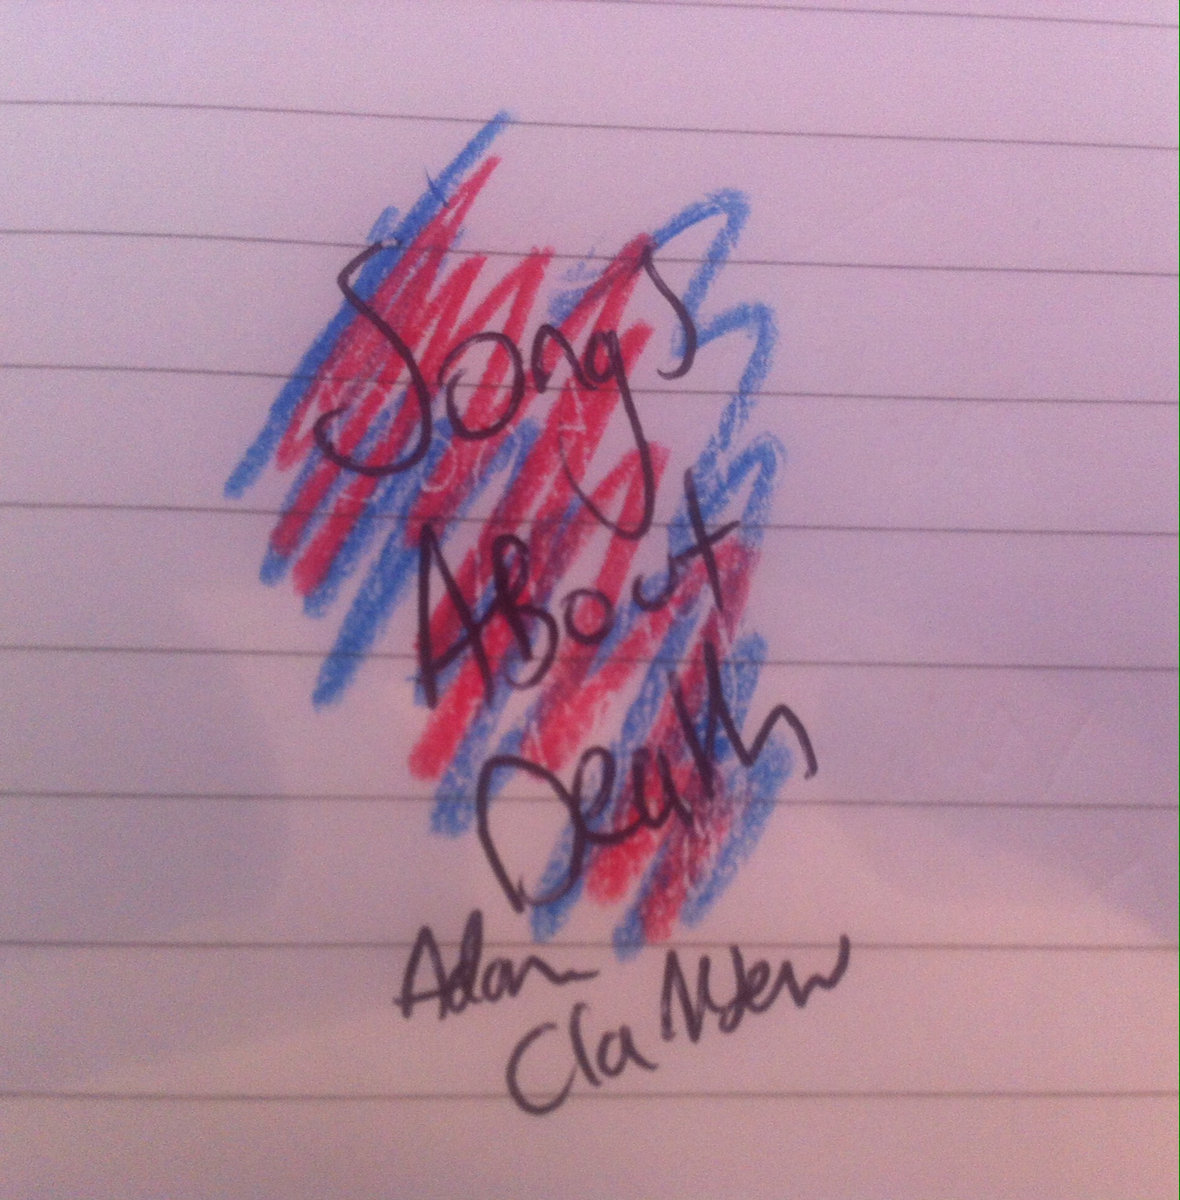 Songs
About
Death
Adam